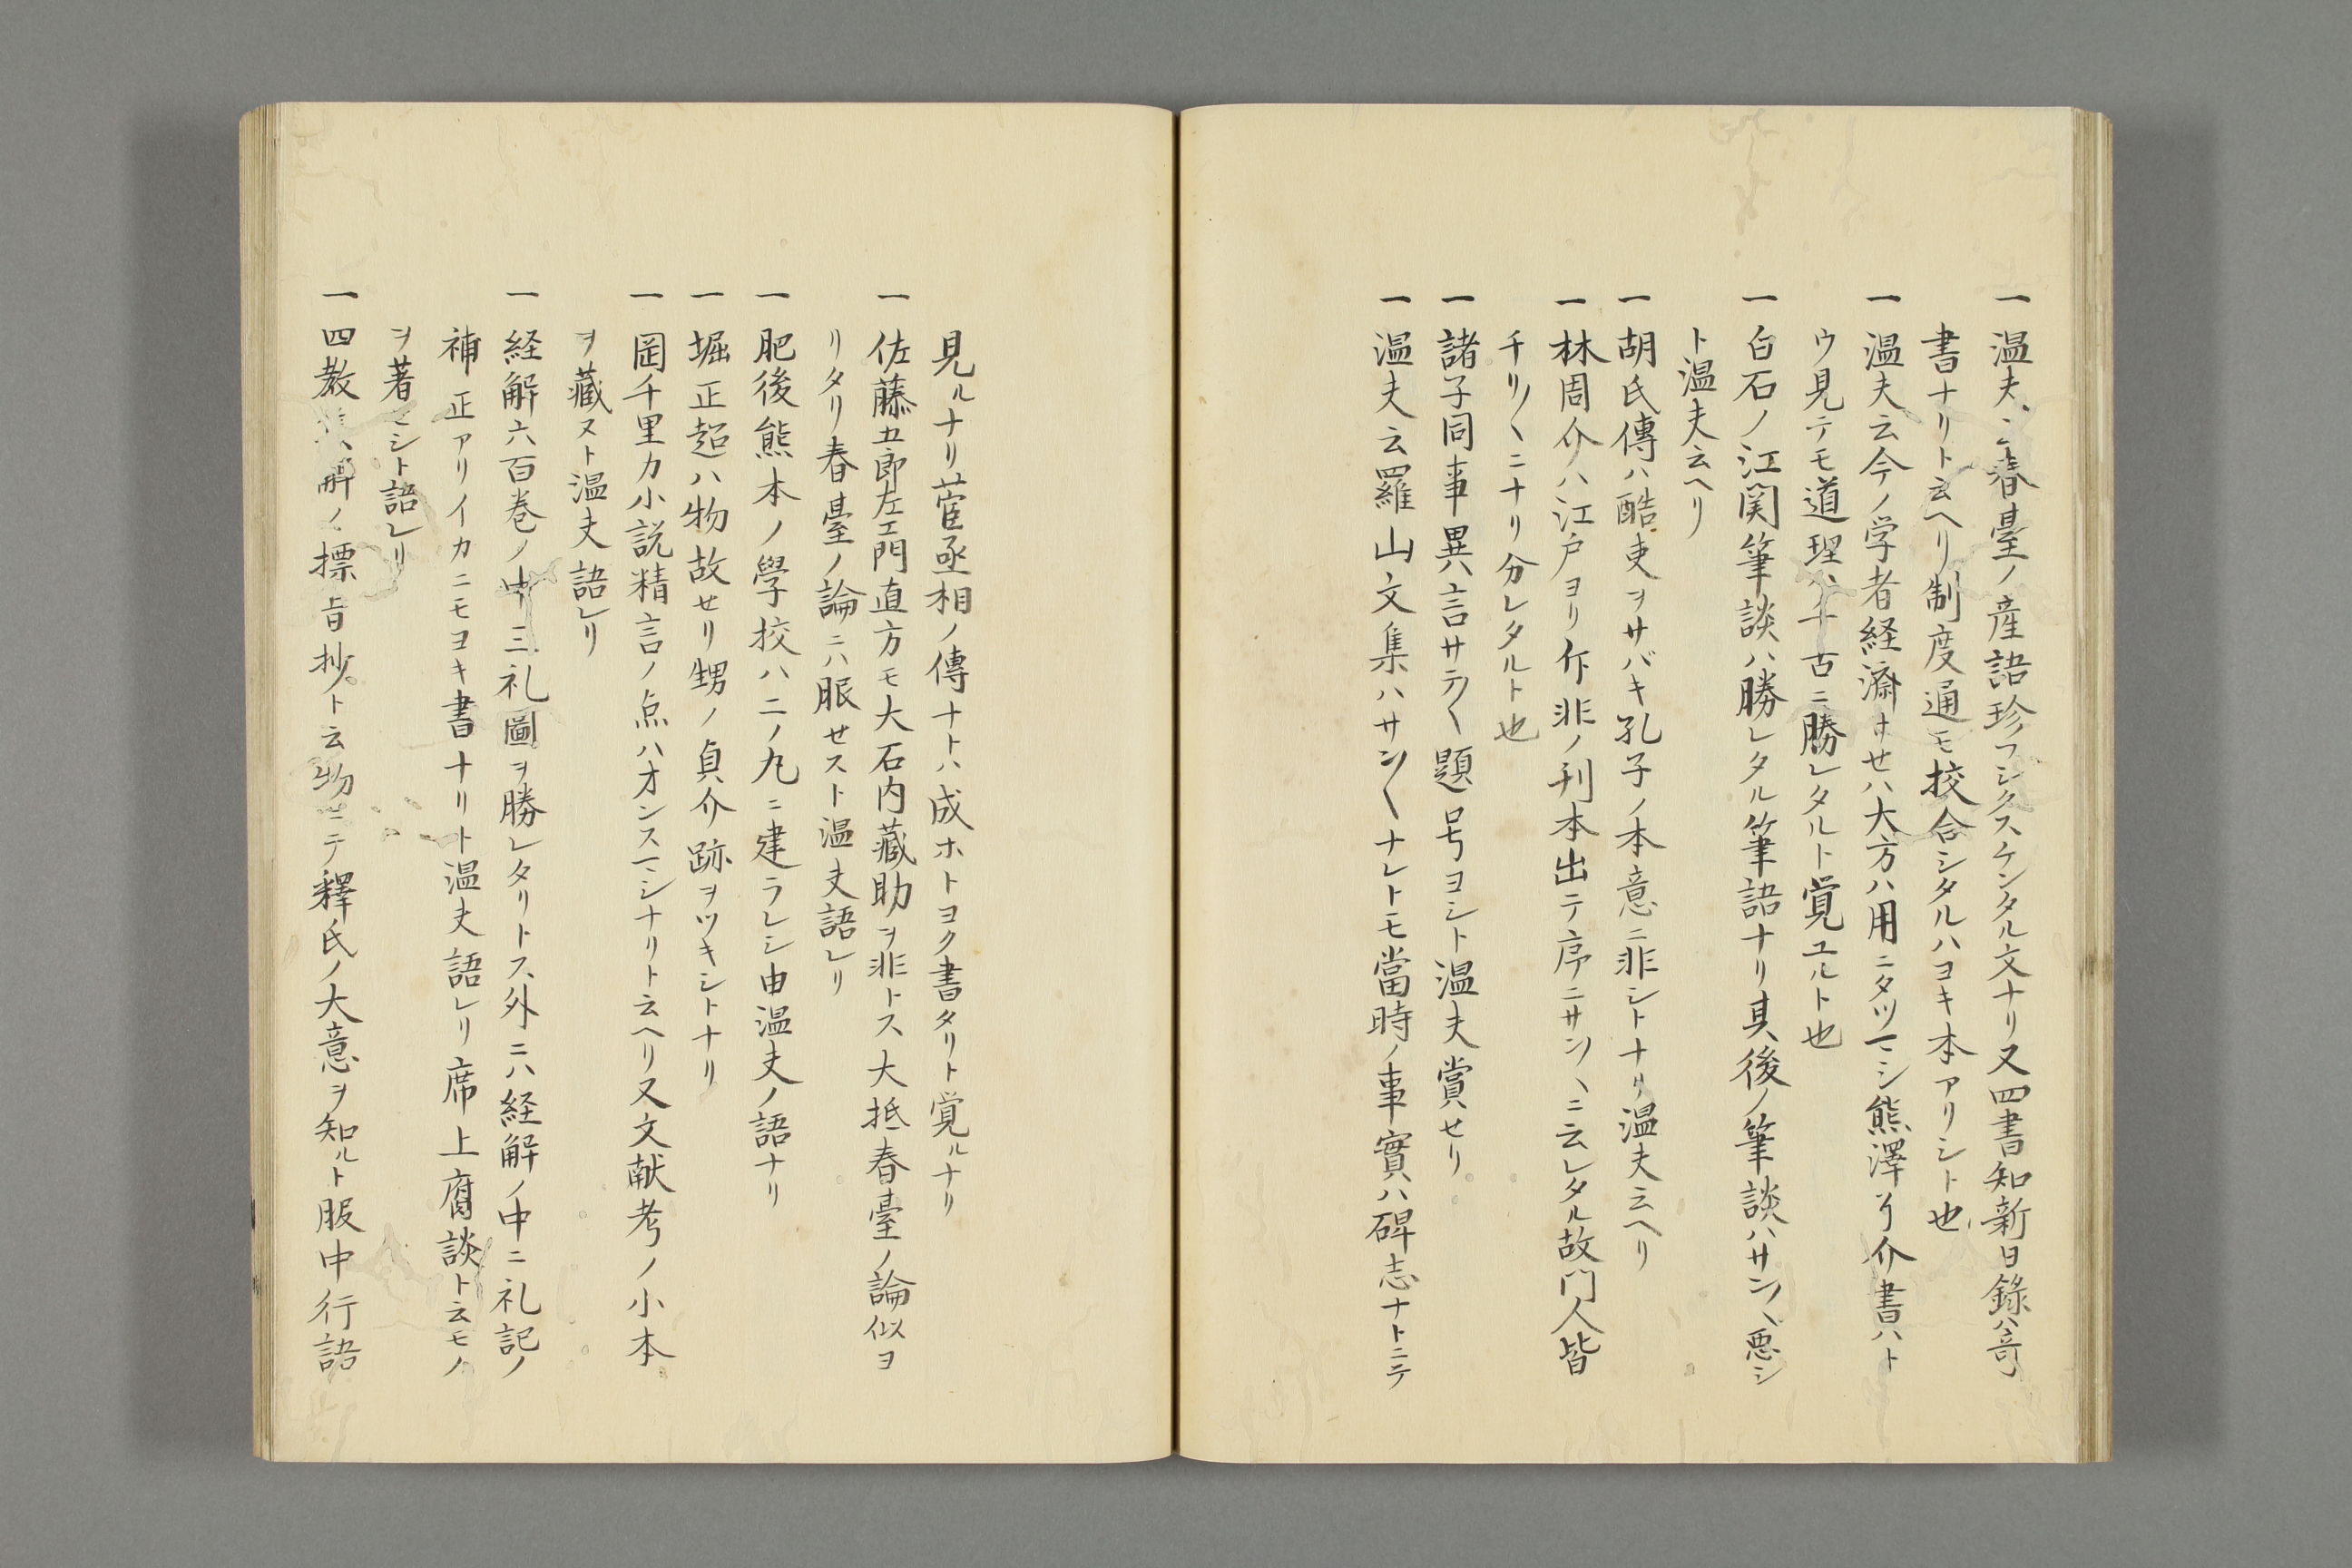 一温夫云春臺ノ産語珍フシクスケンタル文ナリ又四書知新日錄ハ竒
書ナリト云ヘリ制度通モ挍合シタルハヨキ本アリシト也
一温夫云今ノ学者経濟ヲセハ大方ハ用ニタツマシ熊澤了介書ハト
ウ見テモ道理ハ千古ニ勝レタルト覚ユルト也
一白石ノ江関筆談ハ勝レタル筆語ナリ其後ノ筆談ハサン〱悪シ
ト温夫云ヘリ
一胡氏傳ハ酷吏ヲサバキ孔子ノ本意ニ非シトナリ温夫云ヘリ
一林周介ハ江戸ヨリ作非ノ刊本出テ序ニサン〱ニ云レタル故門人皆
千リ〱ニナリ分レタルト也
一諸子同事異言サテ〱題号ヨシト温夫賞せリ
一温夫云羅山文集ハサン〱ナレトモ當時ノ事實ハ碑志ナトニテ
見ルナリ菅丞相ノ傳ナトハ成ホトヨク書タリト覚ルナリ
一佐藤五郎左エ門直方モ大石内藏助ヲ非トス大抵春臺ノ論似ヨ
リタリ春臺ノ論ニハ服せスト温夫語レリ
一肥後熊本ノ學挍ハ二ノ丸ニ建ラレシ由温夫ノ語ナリ
一堀正超ハ物故せリ甥ノ貞介跡ヲツキシトナリ
一岡千里カ小説精言ノ点ハオンスマシナリト云ヘリ又文献考ノ小本
ヲ藏スト温夫語レリ
一経解六百巻ノ中三礼圖ヲ勝レタリトス外ニハ経解ノ中ニ礼記ノ
補正アリイカニモヨキ書ナリト温夫語レリ席上腐談ト云モノ
ヲ著マシト語レリ
一四教解ノ標旨抄ト云物ニテ釋氏ノ大意ヲ知ルト服中行語